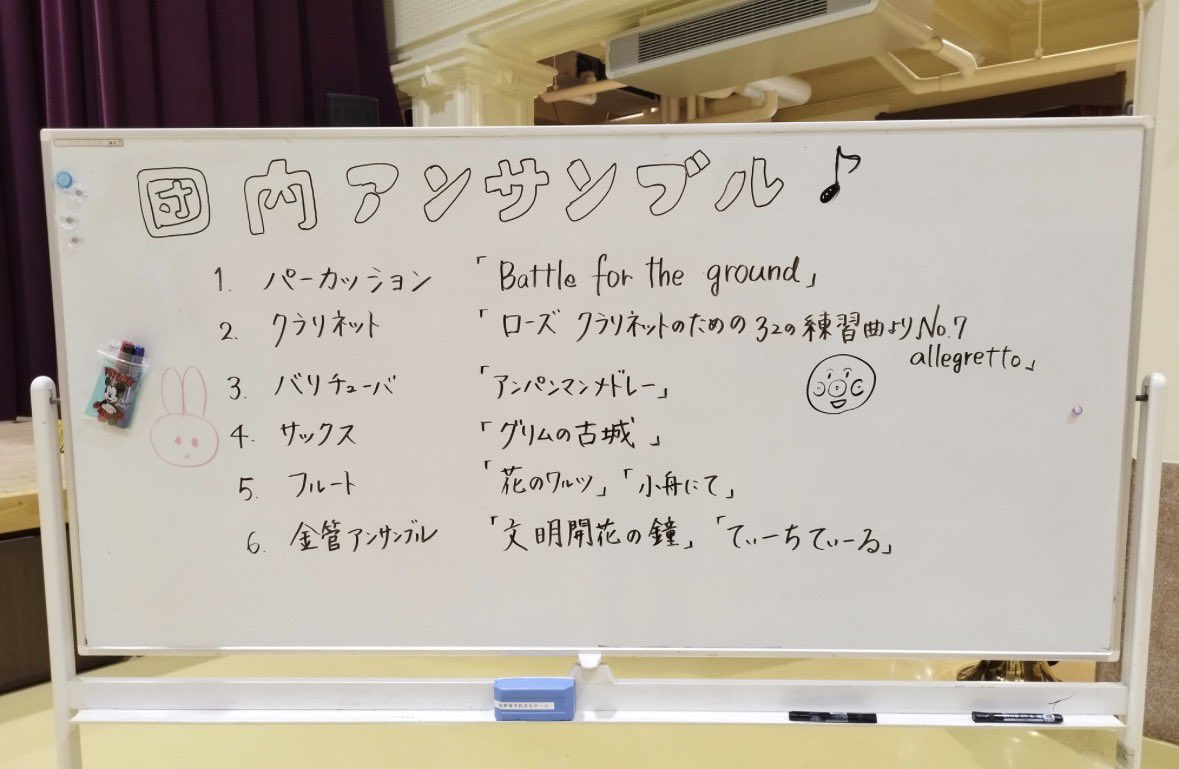 団内アンサンブル♪
1. パーカッション 「Battle for the ground」
2. クラリネット 「ローズ クラリネットのための32の練習曲よりNo.7
allegretto」
3. バリチューバ 「アンパンマンメドレー」
4. サックス 「グリムの古城」
5. フルート 「花のワルツ」「小舟にて」
6. 金管アンサンブル 「文明開花の鐘」「てぃーちてぃーる」